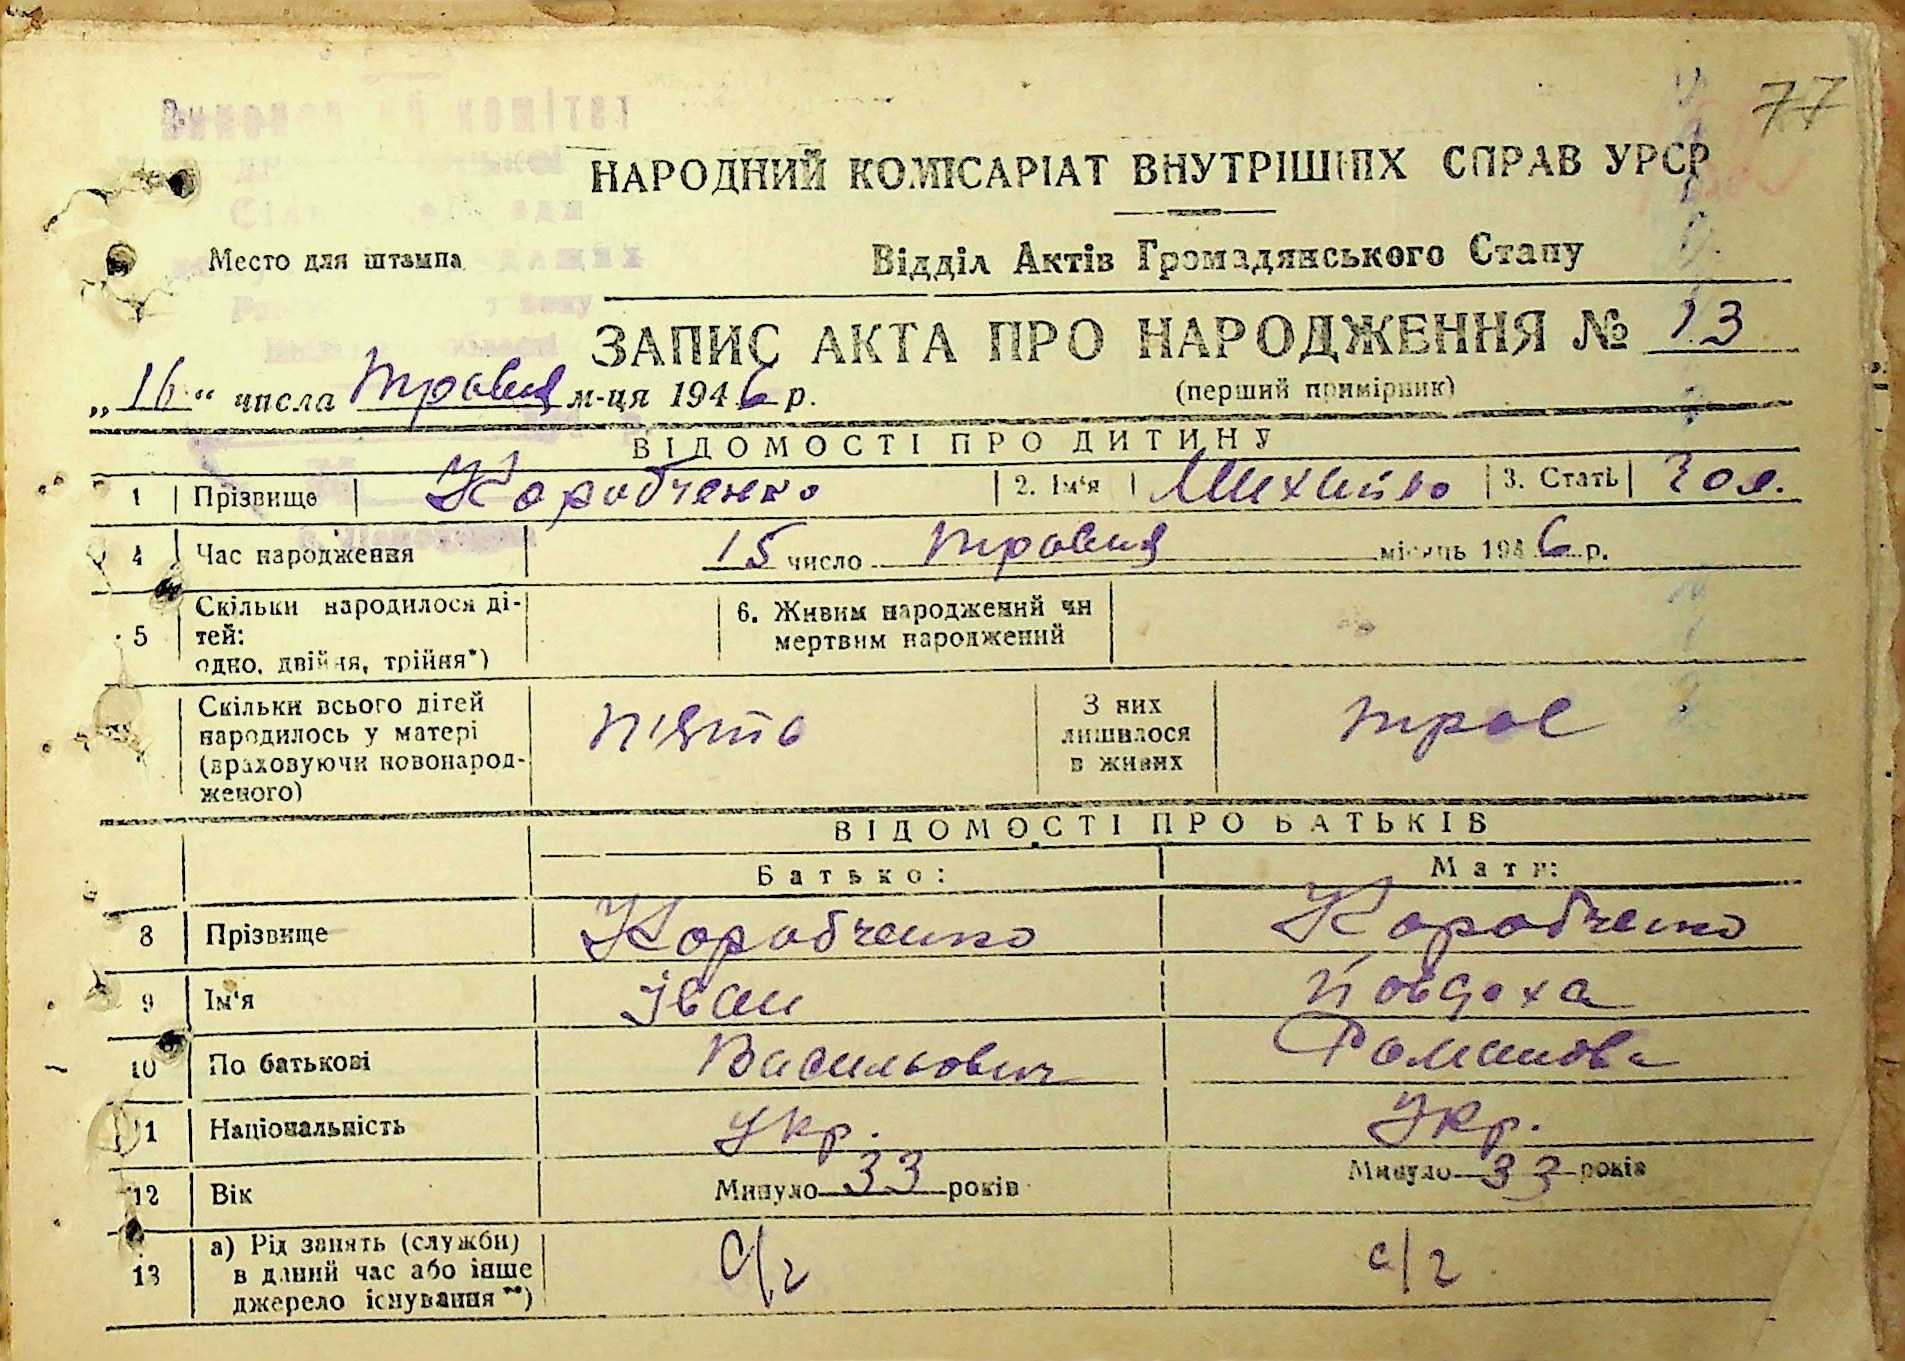 77
НАРОДНИЙ КОМІСАРІАТ ВНУТРІШНІХ СПРАВ УРСР
Место для штампа
Відділ Актів Громадянського Стану
ЗАПИС АКТА ПРО НАРОДЖЕННЯ № 13
„16“ числа травня м-ця 1946 р.
(перший примірник)
ВІДОМОСТІ ПРО ДИТИНУ
1 Прізвище Коробченко 2. Ім‘я Михайло 3. Стать чол.
4 Час народження 15 число травня місяць 1946 р.
5 Скільки народилося ді-
тей:
одно, двійня, трійня*)
6. Живим народжений чи
мертвим народжений
Скільки всього дітей
народилось у матері
(враховуючи новонарод-
женого)
п'ять
З них
лишилося
в живих
троє
ВІДОМОСТІ ПРО БАТЬКІВ
Батько: Мати:
8 Прізвище Коробченко Коробченко
9 Ім‘я Іван Йовдоха
10 По батькові Васильович Романовна
11 Національність Укр. Укр.
12 Вік Минуло 33 років Минуло 33 років
13 а) Рід занять (служби)
в даний час або інше
джерело існування **)
с/г с/г